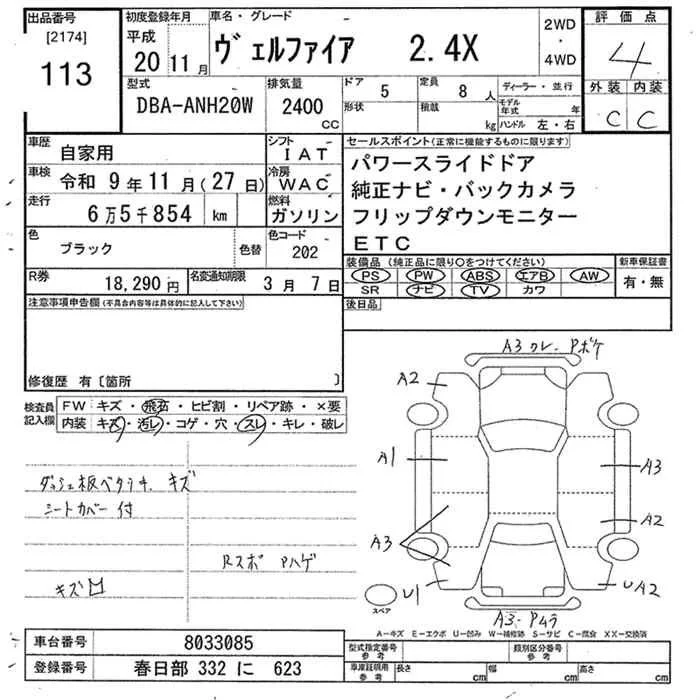 出品番号
[2174]
113
初度登録年月
平成
20 11月
車名・グレード
ヴェルファイア 2.4X
2WD
・
4WD
評価点
4
外装 内装
C C
型式
DBA-ANH20W
排気量
2400
CC
ドア 5
形状
定員 8 人
積載 kg
ディーラー・並行
モデル年式 年
ハンドル 左・右
車歴 自家用
シフト IAT
車検 令和 9年11月(27日)
冷房 WAC
走行 6万5千854 km
燃料 ガソリン
色 ブラック
色替
色コード 202
R券 18,290円
名変通知期限 3月 7日
セールスポイント(正常に機能するものに限ります)
パワースライドドア
純正ナビ・バックカメラ
フリップダウンモニター
ETC
装備品 (純正品に限り○をつけてください)
PS PW ABS エアB AW
SR ナビ TV カワ
新車保証書
有・無
後日品
注意事項申告欄(不具合内容等は具体的に記入して下さい)
修復歴 有〔箇所 〕
検査員記入欄
FW キズ・飛石・ヒビ割・リペア跡・×要
内装 キズ・汚レ・コゲ・穴・スレ・キレ・破レ
ダッシュ板ベタツキ、キズ
シートカバー付
Rスポ Pハゲ
キズ
A3 ワレ、Pボケ
A2
A1
A3
A3
A2
U1
UA2
A3、Pムラ
スペア
A-キズ E-エクボ U-凹み W-補修跡 S-サビ C-腐食 XX-交換済
車台番号 8033085
登録番号 春日部 332 に 623
型式指定番号 参考
類別区分番号 参考
車庫証明用 参考
長さ cm
幅 cm
高さ cm